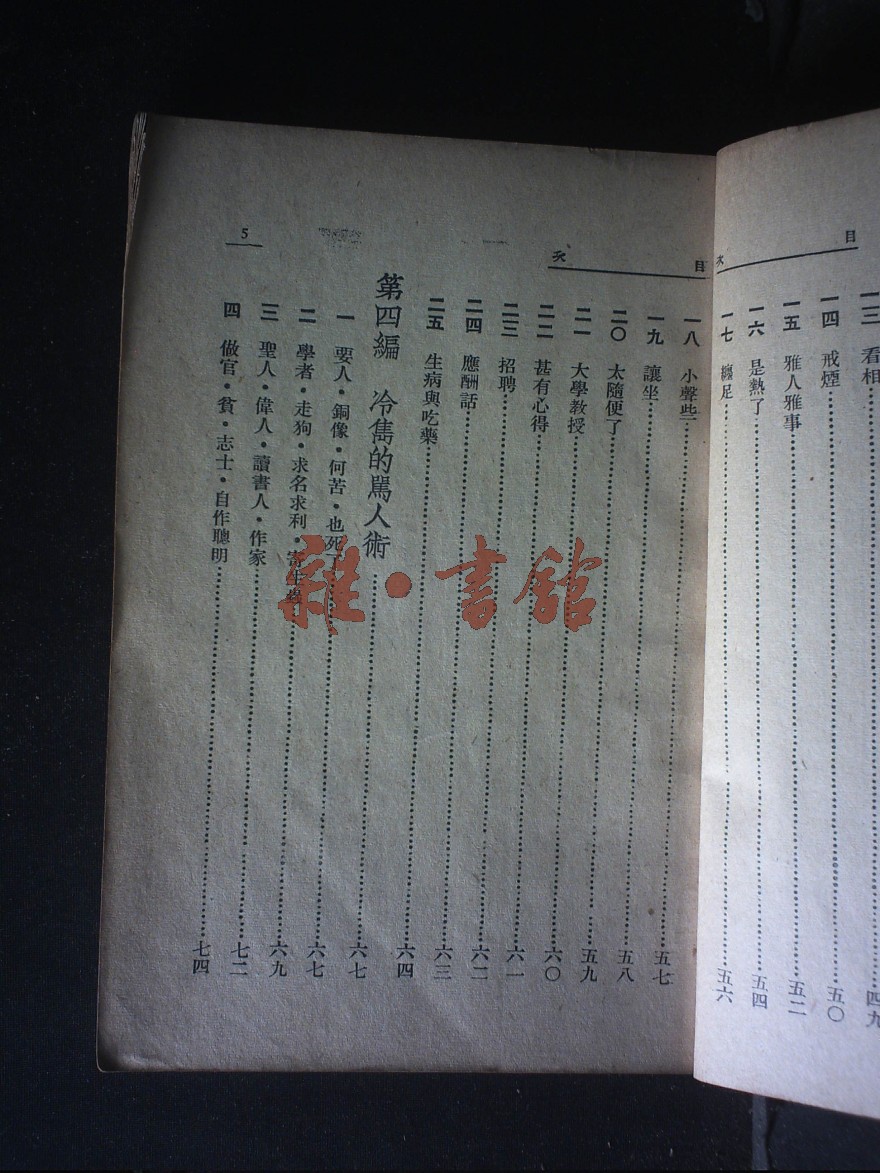 目次
一三 看相 四九
一四 戒煙 五〇
一五 雅人雅事 五二
一六 是熱了 五四
一七 纏足 五六
目次
一八 小聲些 五七
一九 讓坐 五八
二〇 太隨便了 五九
二一 大學教授 六〇
二二 甚有心得 六一
二三 招聘 六二
二四 應酬話 六三
二五 生病與吃藥 六四
第四編 冷雋的罵人術 六七
一 要人・銅像・何苦・也死了 六七
二 學者・走狗・求名求利・寄生蟲 六九
三 聖人・偉人・讀書人・作家 七二
四 做官・貧・志士・自作聰明 七四
5
雜・書館